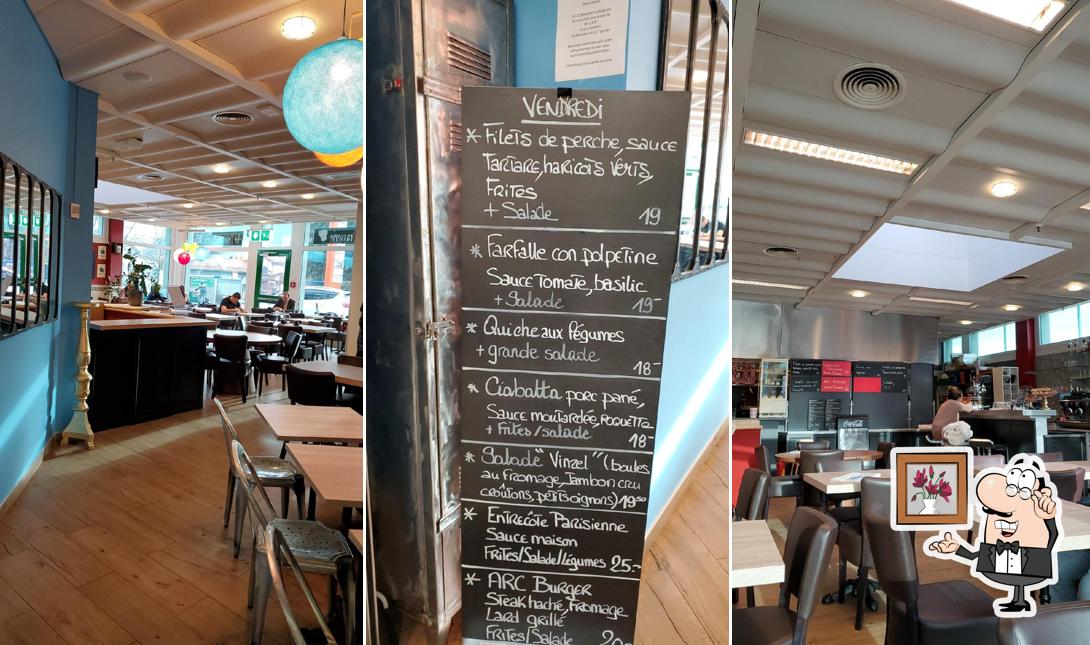 VENDREDI
* Filets de perche, sauce
Tartare, haricots verts,
Frites
+ Salade 19
* Farfalle con polpetine
Sauce Tomate, basilic
+ Salade 19-
* Quiche aux légumes
+ grande salade
18-
* Ciabatta porc pané,
Sauce moutardée, roquette
+ Frites/salade 18-
* Salade "Vinzel" (boules
au fromage, jambon cru
croûtons, petits oignons) 19⁵⁰
* Entrecôte Parisienne
Sauce maison
Frites/Salade/légumes 25.-
* ARC Burger
Steak haché, fromage
Lard grillé
Frites/Salade
Coca-Cola